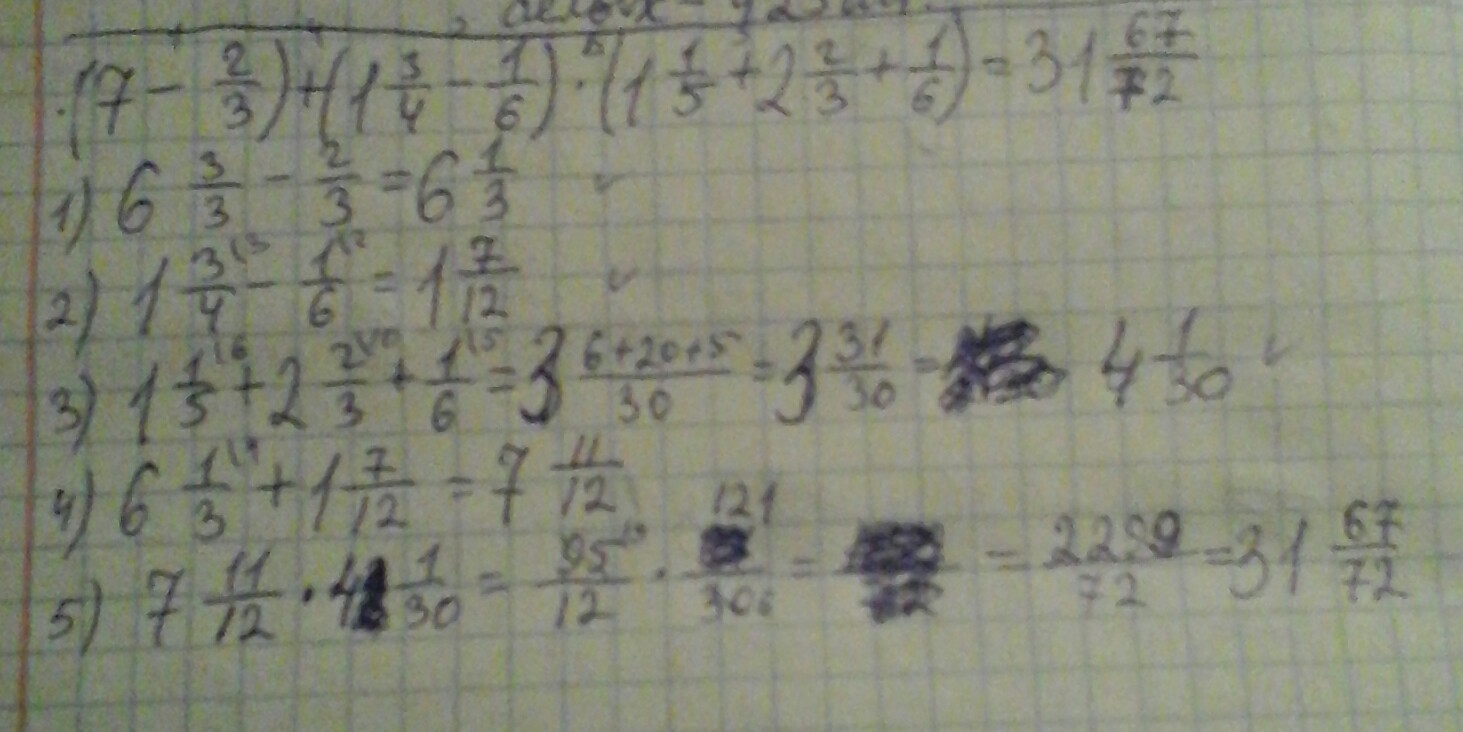 (7 - 2/3) + (1 3/4 - 1/6) · (1 1/5 + 2 2/3 + 1/6) = 31 67/72
1) 6 3/3 - 2/3 = 6 1/3
2) 1 3/4 - 1/6 = 1 7/12
3) 1 1/5 + 2 2/3 + 1/6 = 3 (6+20+5)/30 = 3 31/30 = 4 1/30
4) 6 1/3 + 1 7/12 = 7 11/12
5) 7 11/12 · 4 1/30 = 95/12 · 121/30 = = 2299/72 = 31 67/72